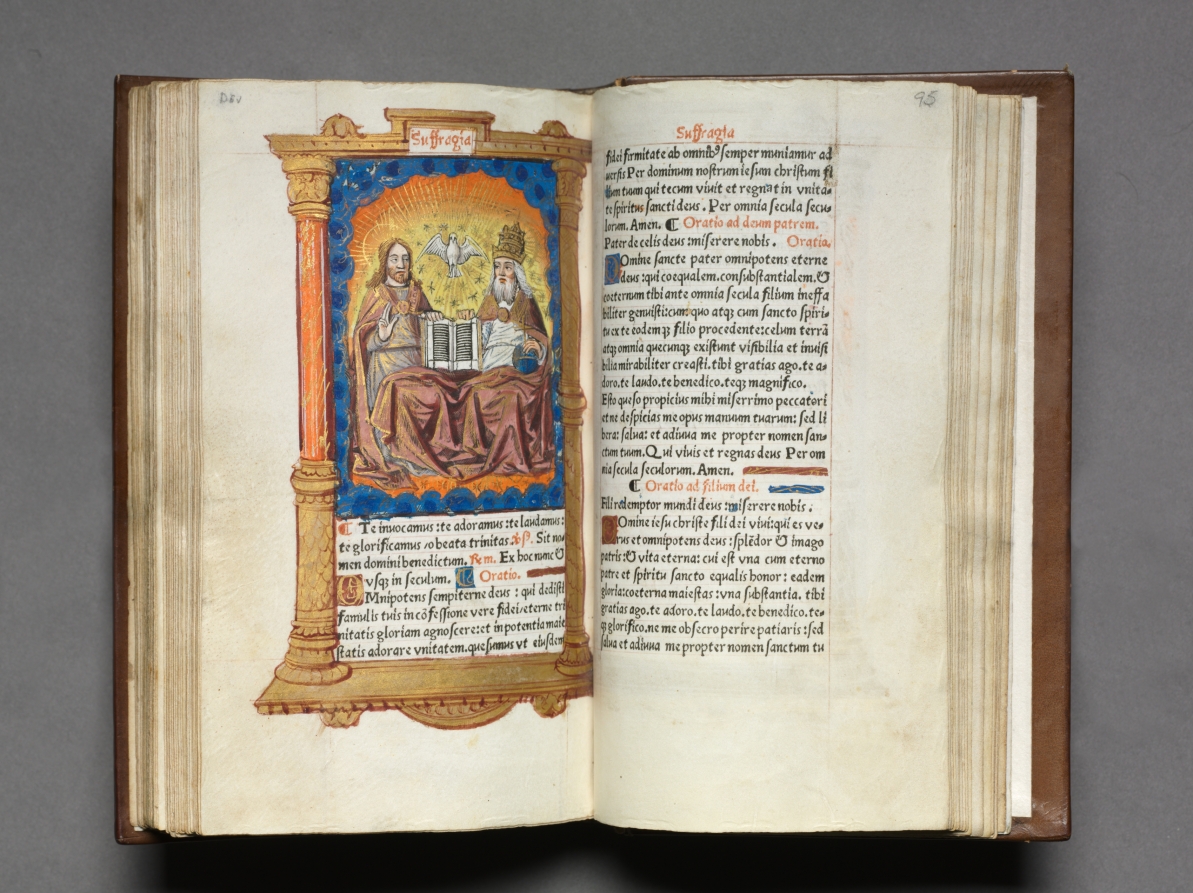 D5v
Suffragia
¶ Te inuocamus :te adoramus :te laudamus:
te glorificamus /o beata trinitas. ℣. Sit no⸗
men domini benedictum. ℟em. Ex hoc nunc &
vsq; in seculum. ¶ Oratio.
OMnipotens sempiterne deus : qui dedisti
famulis tuis in cōfessione vere fidei/eterne tri
nitatis gloriam agnoscere:et in potentia maie
statis adorare vnitatem.quesumus vt eiusdem
95
Suffragia
fidei firmitate ab omnibꝰ semper muniamur ad
uersis Per dominum nostrum iesum christum fi
lium tuum qui tecum viuit et regnat in vnita⸗
te spiritus sancti deus . Per omnia secula secu⸗
lorum. Amen. ¶ Oratio ad deum patrem.
Pater de celis deus :miserere nobis . Oratio.
DOmine sancte pater omnipotens eterne
deus : qui coequalem.consubstantialem.&
coeternum tibi ante omnia secula filium ineffa
biliter genuisti:cum quo atq; cum sancto spiri⸗
tu ex te eodemq; filio procedente:celum terrā
atq; omnia quecunq; existunt visibilia et inuisi
bilia mirabiliter creasti.tibi gratias ago.te a⸗
doro.te laudo.te benedico.teq; magnifico.
Esto queso propicius mihi miserrimo peccatori
et ne despicias me opus manuum tuarum: sed li
bera: salua: et adiuua me propter nomen san⸗
ctum tuum. Qui viuis et regnas deus Per om
nia secula seculorum. Amen.
¶ Oratio ad filium dei.
Fili redemptor mundi deus :miserere nobis .
DOmine iesu christe fili dei viui:qui es ve⸗
rus et omnipotens deus :splēdor & imago
patris:& vita eterna: cui est vna cum eterno
patre et spiritu sancto equalis honor : eadem
gloria:coeterna maiestas :vna substantia. tibi
gratias ago.te adoro.te laudo.te benedico.te⸗
q; glorifico.ne me obsecro perire patiaris :sed
salua et adiuua me propter nomen sanctum tu